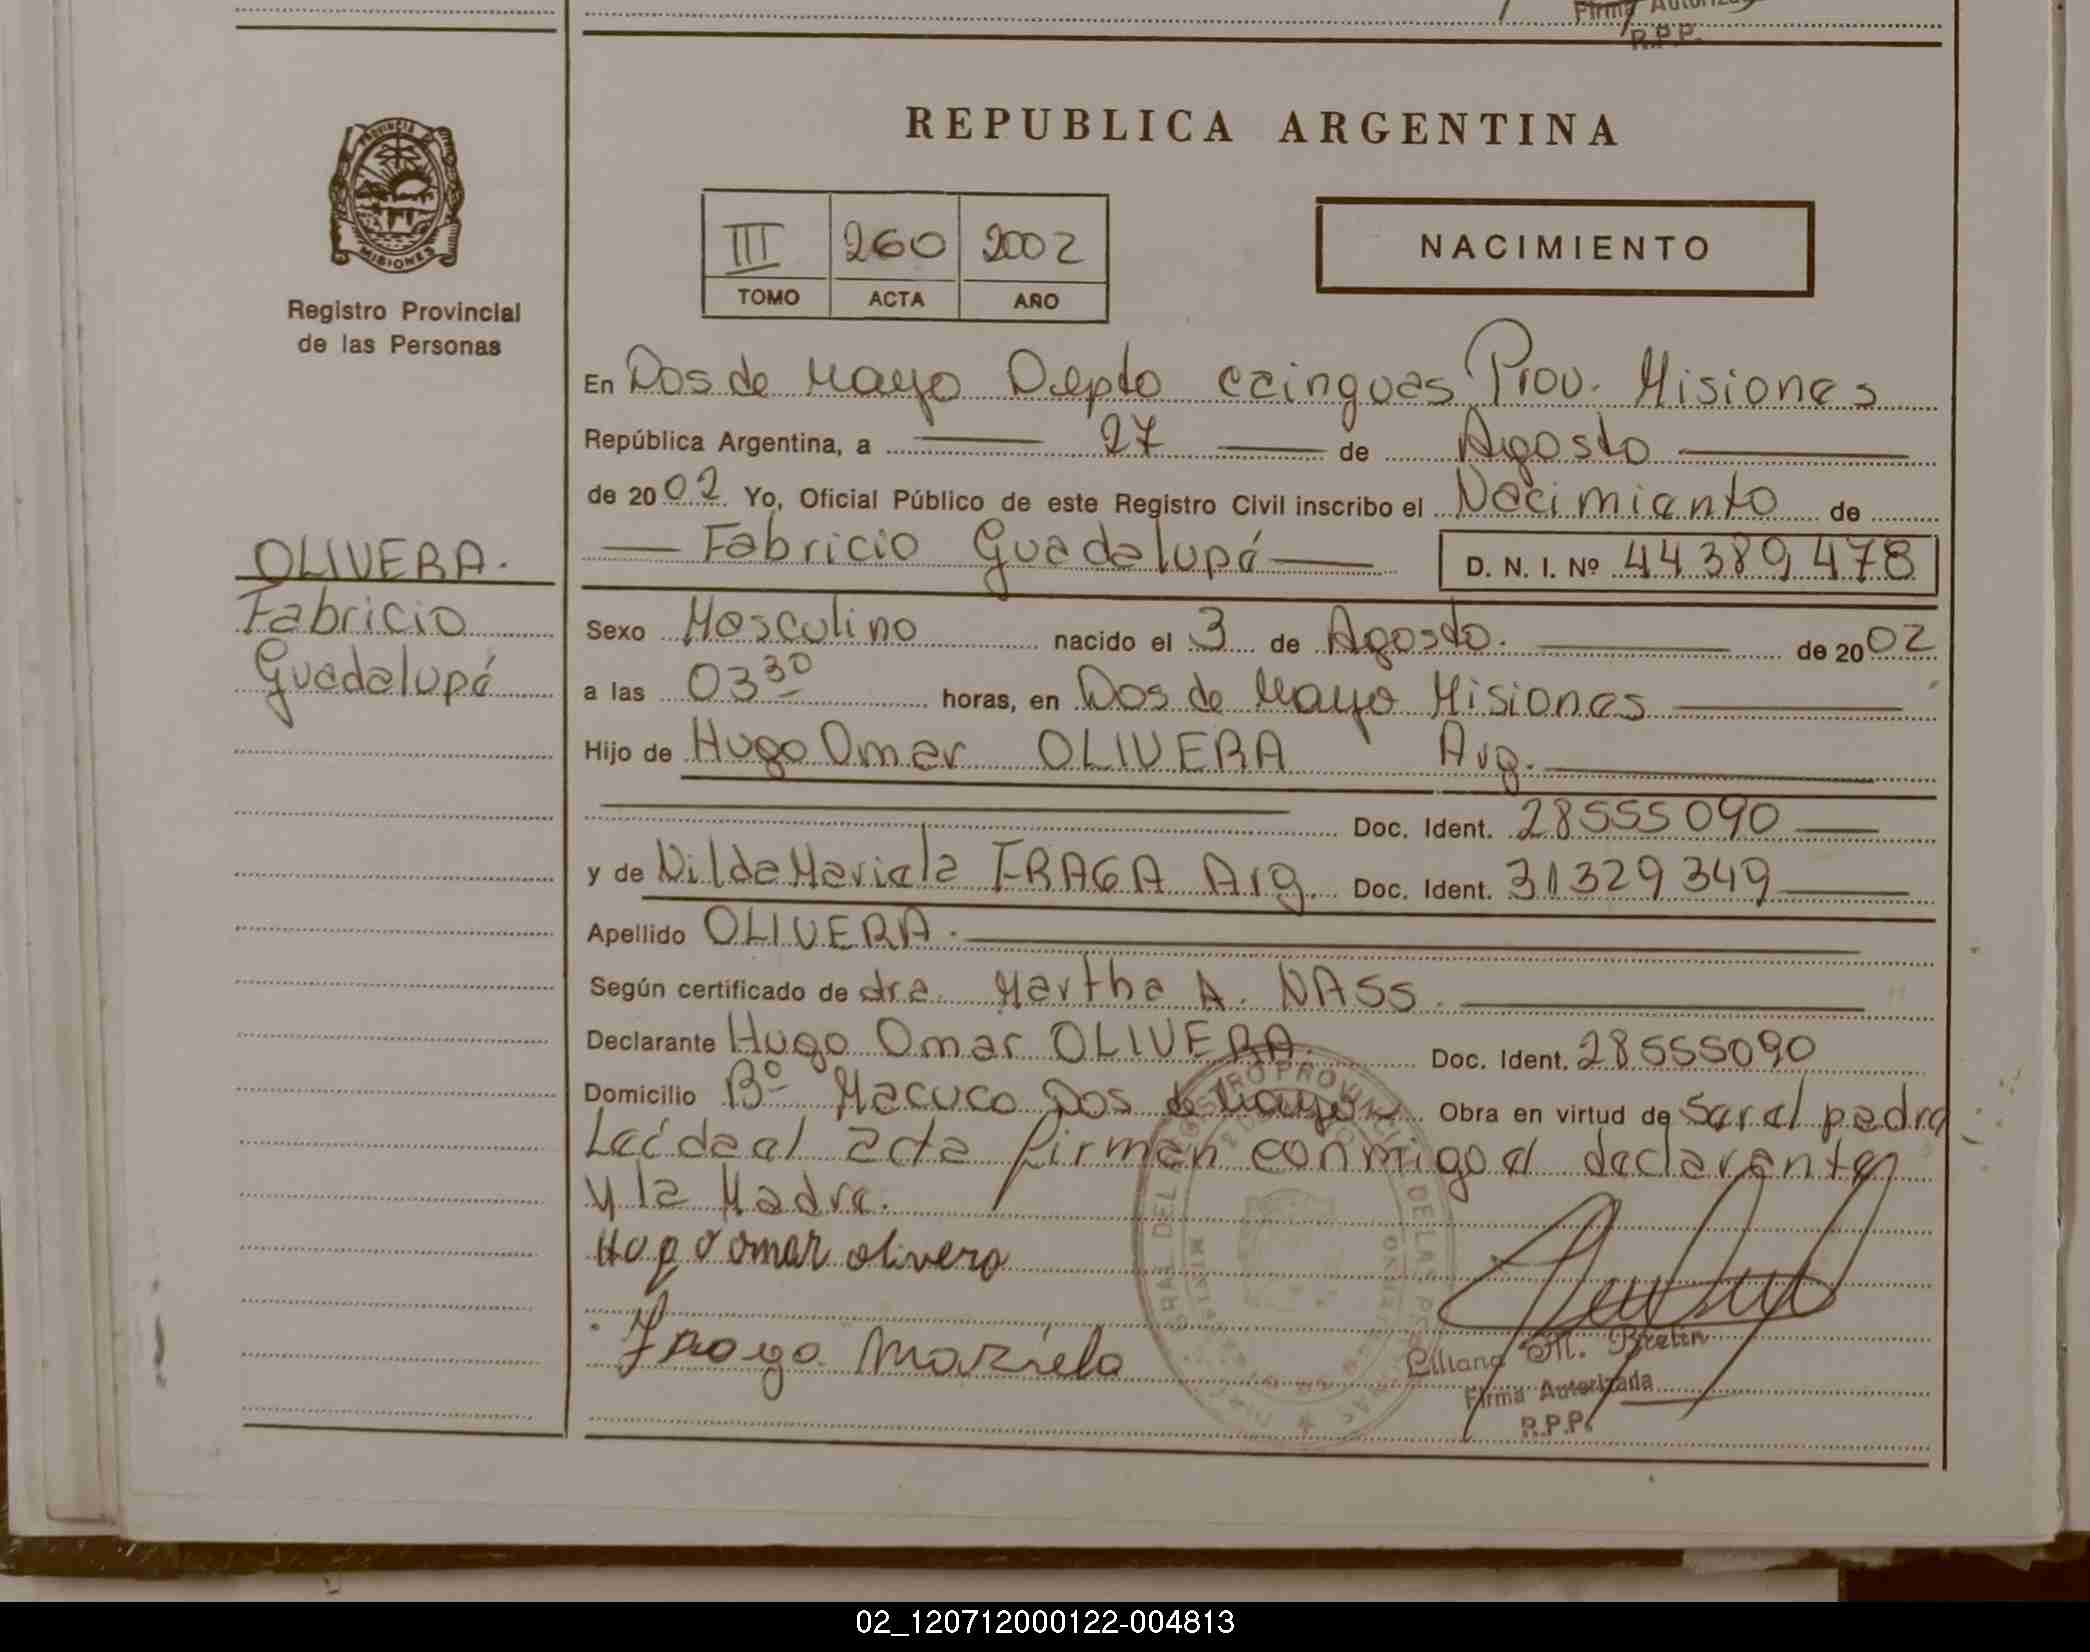 Firma Autoriza
R.P.P.
PROVINCIA
MISIONES
Registro Provincial
de las Personas
REPUBLICA ARGENTINA
III 260 2002
TOMO ACTA AÑO
NACIMIENTO
En Dos de Mayo Depto Cainguas Prov. Misiones
República Argentina, a 27 de Agosto
de 2002 Yo, Oficial Público de este Registro Civil inscribo el Nacimiento de
Fabricio Guadalupé D. N. I. Nº 44389478
OLIVERA.
Fabricio
Guadalupé
Sexo Masculino nacido el 3 de Agosto. de 2002
a las 03 30 horas, en Dos de Mayo Misiones
Hijo de Hugo Omar OLIVERA Arg.
Doc. Ident. 28555090
y de Nilda Mariela FRAGA Arg. Doc. Ident. 31329349
Apellido OLIVERA.
Según certificado de dra. Martha A. NASS.
Declarante Hugo Omar OLIVERA. Doc. Ident. 28555090
Domicilio Bº Macuco Dos de Mayo Obra en virtud de Ser el padre
Leída el acta firman conmigo el declarante
y la Madre.
Hugo omar olivera
Fraga Mariela
Liliana M. Brelin
Firma Autorizada
R.P.P.
02_120712000122-004813